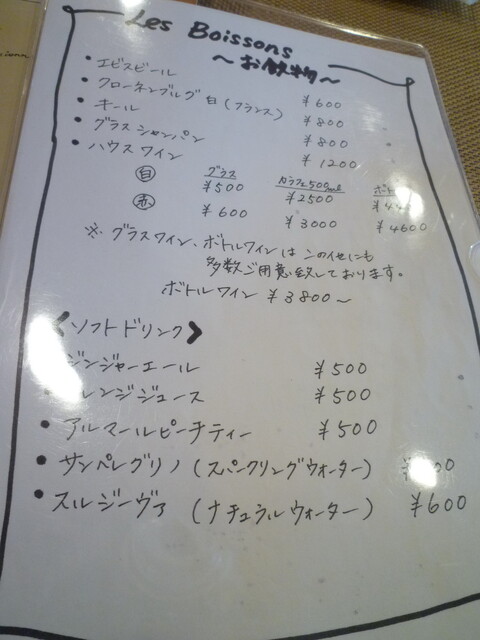 Les Boissons
～お飲物～
• エビスビール ¥600
• クローネンブルグ 白（フランス） ¥800
• キール ¥800
• グラスシャンパン ¥1200
• ハウスワイン
グラス カラフェ500ml
白 ¥500 ¥2500
赤 ¥600 ¥3000 ¥4600
※ グラスワイン、ボトルワインは この他にも
多数ご用意致しております。
ボトルワイン ¥3800～
〈ソフトドリンク〉
ジンジャーエール ¥500
レンジジュース ¥500
• アルマールピーチティー ¥500
• サンペレグリノ（スパークリングウォーター）
• スルジーヴァ（ナチュラルウォーター） ¥600